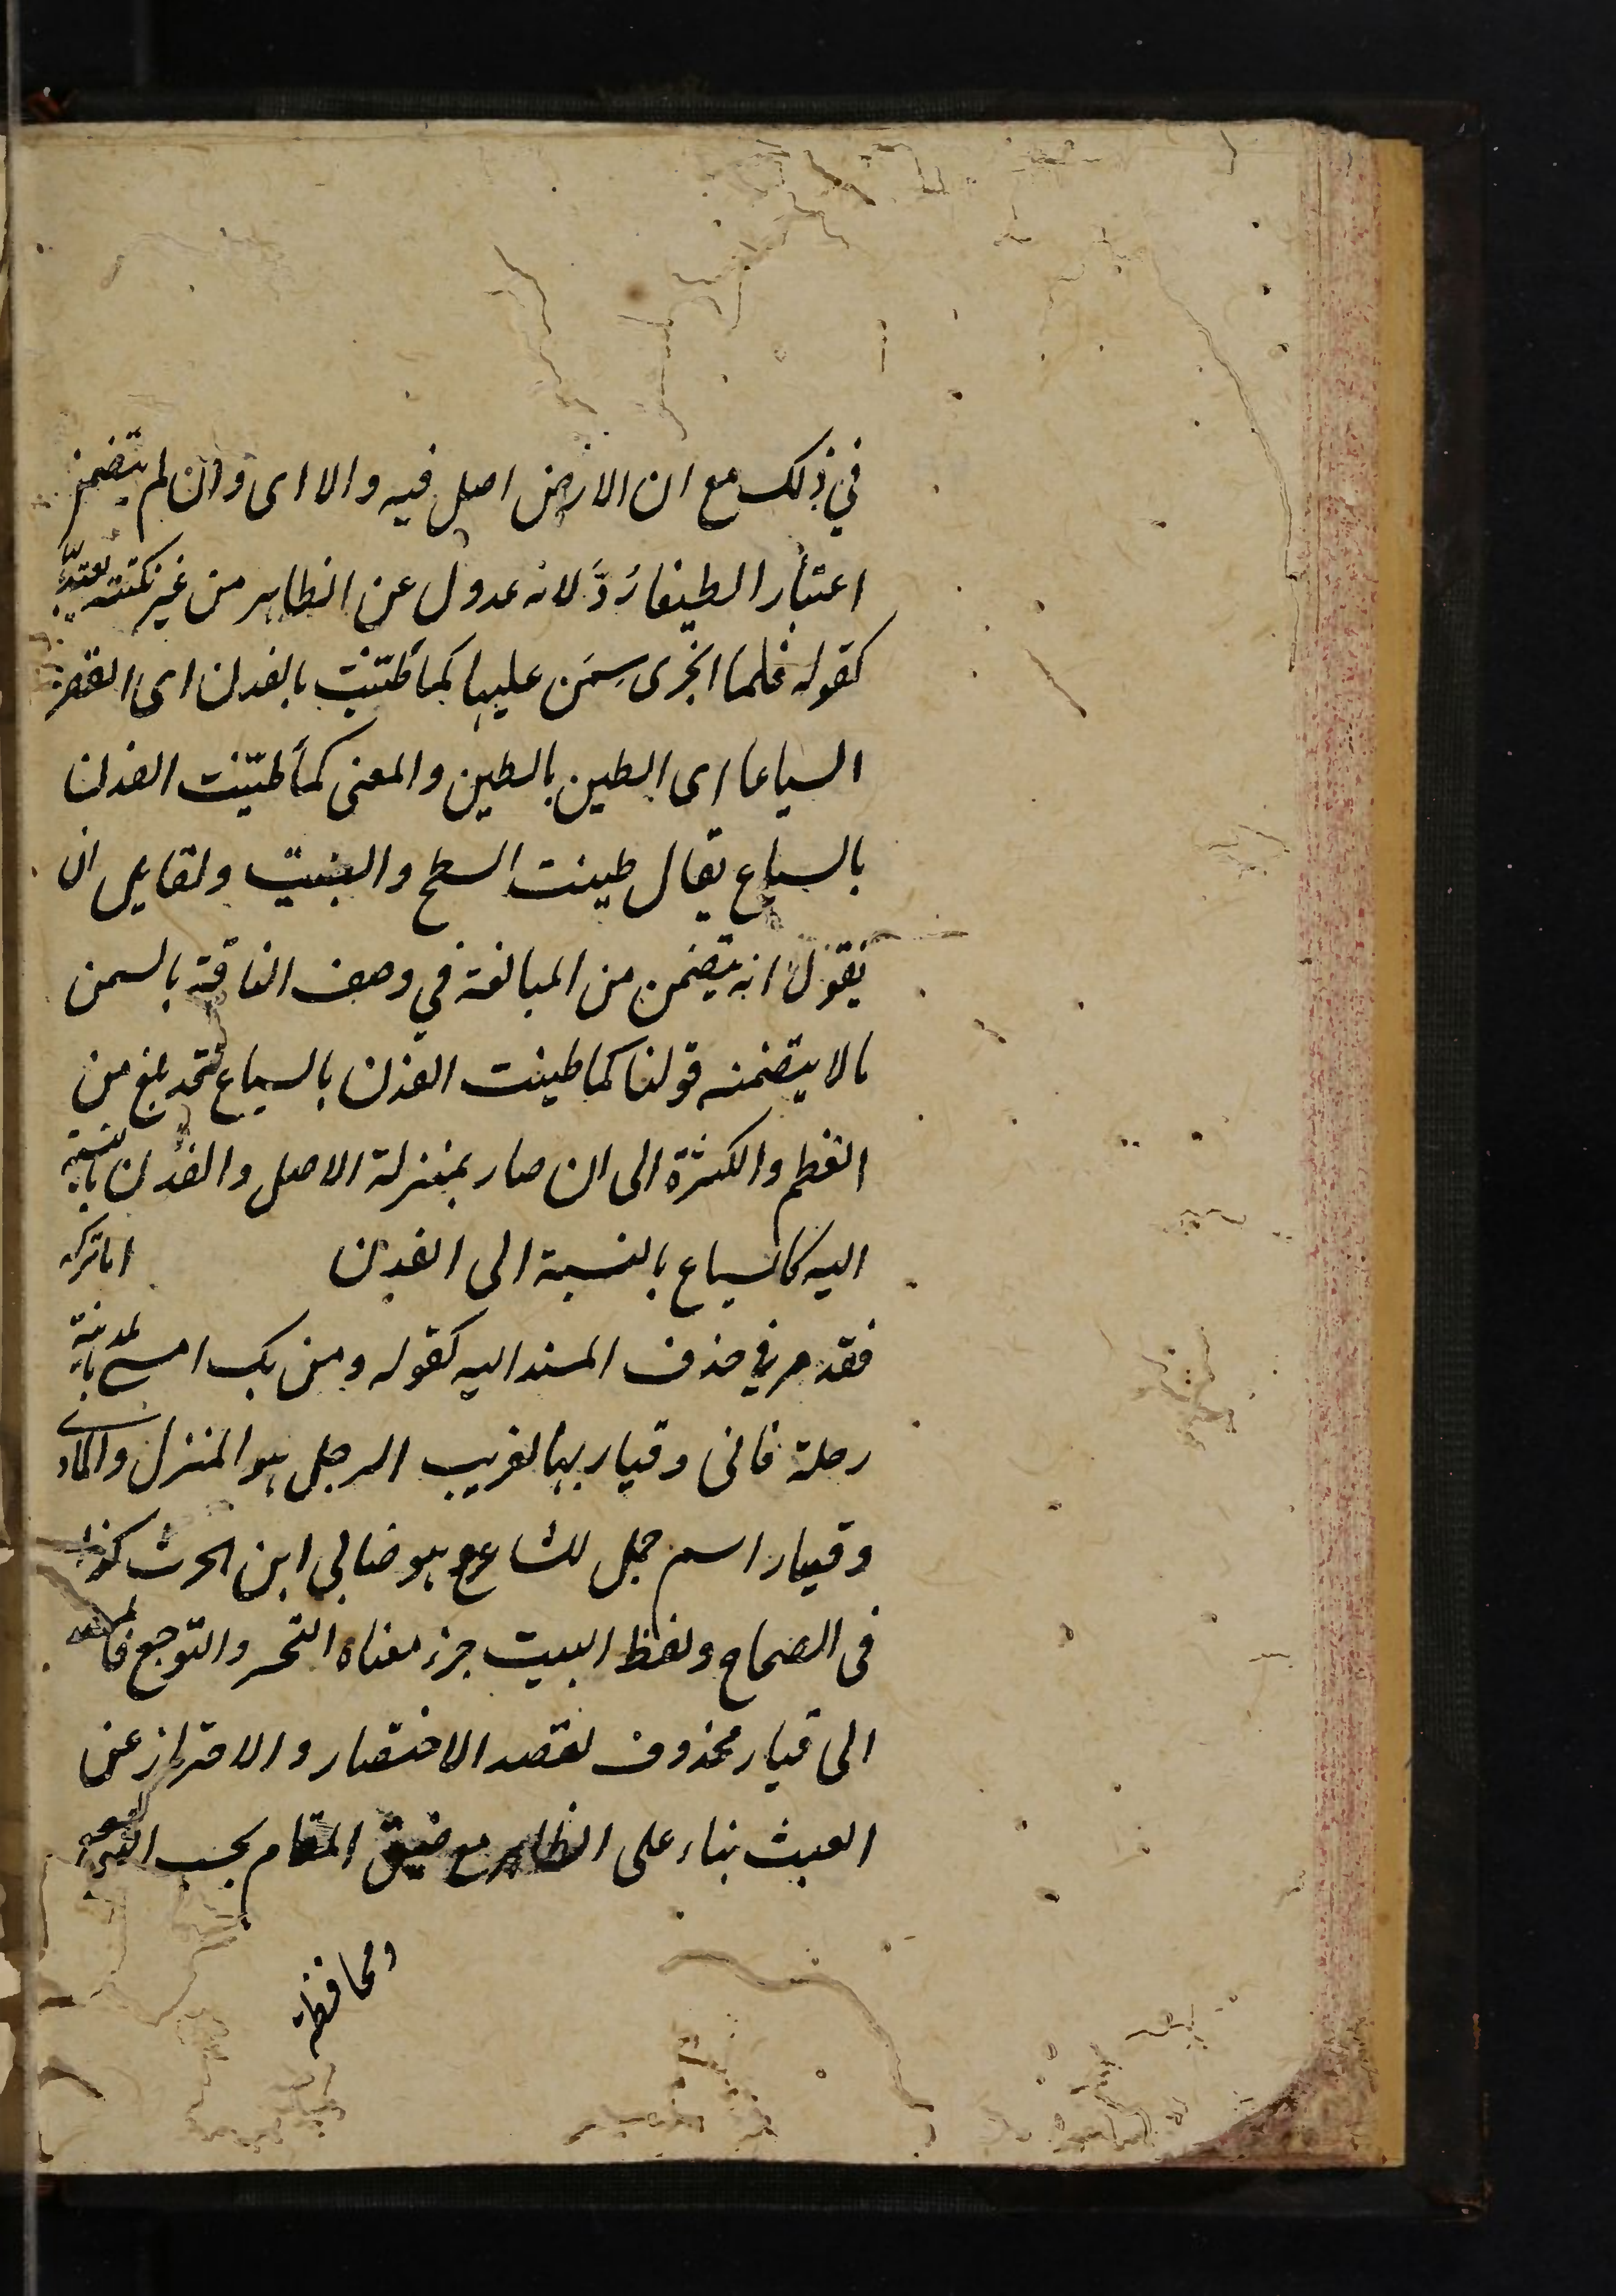 في ذلك مع ان الارض اصل فيه والا اى وان لم يتضمن
اعتبارا لطيفا رُدَّ لانه عدول عن الظاهر من غير نكتة يعتد بها
كقوله فلما ان جرى سِمَن عليها كما طَيّنْتَ بالفدن اى القصر
السياعا اى الطين بالطين والمعنى كما طيّنت الفدن
بالسياع يقال طينت السطح والبيت ولقايل ان
يقول انه يتضمن من المبالغة في وصف الناقة بالسمن
ما لا يتضمنه قولنا كما طينت الفدن بالسياع قد بلغ من
العظم والكثرة الى ان صار بمنزلة الاصل والفدن بالنسبة
اليه كالسياع بالنسبة الى الفدن اما تركه
فقد مر في حذف المسند اليه كقوله ومن يك امسى بالمدينة
رحله فانى وقيار بها لغريب الرحل هو المنزل والماوى
وقيار اسم جمل للشاعر وهو ضابي ابن الحرث كذا
فى الصحاح ولفظ البيت خبر ومعناه التحسر والتوجع فالمسند
الى قيار محذوف لقصد الاختصار والاحتراز عن
العبث بناء على الظاهر مع ضيق المقام بحسب التوجع
ومحافظة